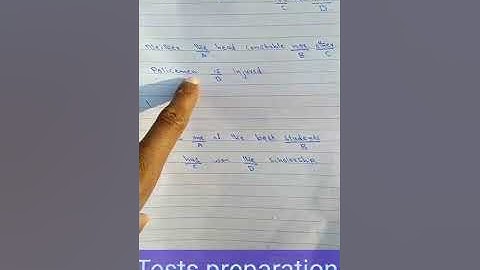 C D
Neither the head constable nor
A B C
Policemen is injured
D
of the best students
A B
has won the scholarship
C D
Tests preparation